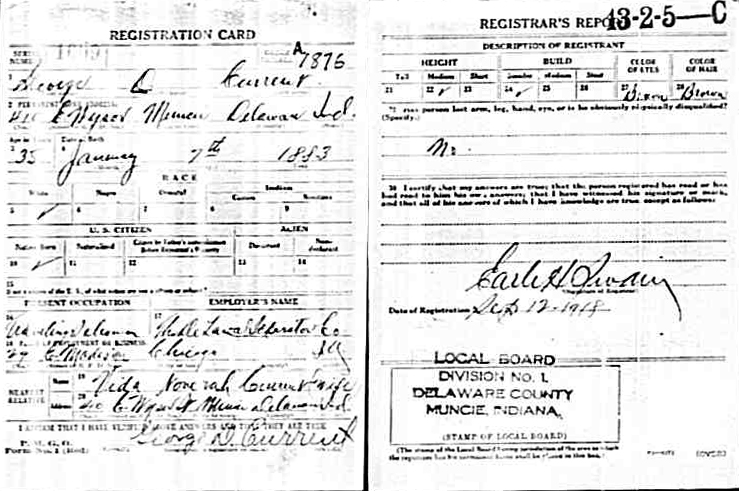 REGISTRATION CARD
SERIAL NUMBER
A7876
1 George D Current
2 PERMANENT HOME ADDRESS:
410 E Wysor Muncie Delaware Ind.
Age in Years Date of Birth
35 January 7th 1883
RACE
White Negro Oriental Indian
Citizen Noncitizen
5 ✓ 6 7 8 9
U. S. CITIZEN ALIEN
Native Born Naturalized Citizen by Father's Naturalization Before Registrant's Majority Declarant Non-declarant
10 ✓ 11 12 13 14
15
If not a citizen of the U. S., of what nation are you a citizen or subject?
PRESENT OCCUPATION EMPLOYER'S NAME
16 Traveling Salesman 17 Separator Co
18 PLACE OF EMPLOYMENT OR BUSINESS:
29 E Madison Chicago Ill
NEAREST RELATIVE
Name 19 Veda Current wife
Address 20 410 E Wysor Muncie Delaware Ind.
I AFFIRM THAT I HAVE VERIFIED ABOVE ANSWERS AND THAT THEY ARE TRUE
P. M. G. O.
Form No. 1 (Red) George D. Current
REGISTRAR'S REPORT
13-2-5—C
DESCRIPTION OF REGISTRANT
HEIGHT BUILD COLOR OF EYES COLOR OF HAIR
Tall Medium Short Slender Medium Stout
21 22 ✓ 23 24 ✓ 25 26 27 Brown 28 Brown
29 Has person lost arm, leg, hand, eye, or is he obviously physically disqualified?
(Specify.)
No.
30 I certify that my answers are true; that the person registered has read or has
had read to him his own answers; that I have witnessed his signature or mark,
and that all of his answers of which I have knowledge are true, except as follows:
Earle H Swain
Date of Registration Sept 12-1918
LOCAL BOARD
DIVISION NO. 1.
DELAWARE COUNTY
MUNCIE, INDIANA.
(STAMP OF LOCAL BOARD)
(The stamp of the Local Board having jurisdiction of the area in which
the registrant has his permanent home shall be placed in this box.)
(OVER)